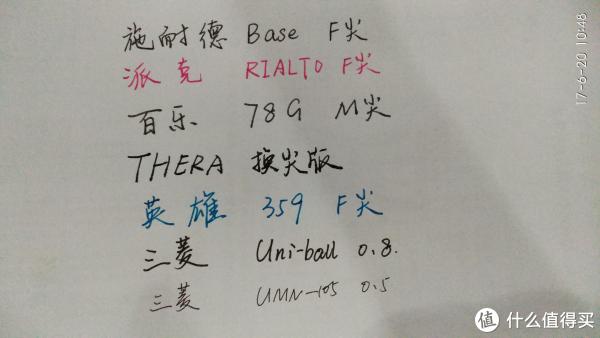 施耐德 Base F尖
派克 RIALTO F尖
百乐 78G M尖
THERA 换尖版
英雄 359 F尖
三菱 Uni-ball 0.8.
三菱 UMN-105 0.5
17-6-20 10:48
值 什么值得买